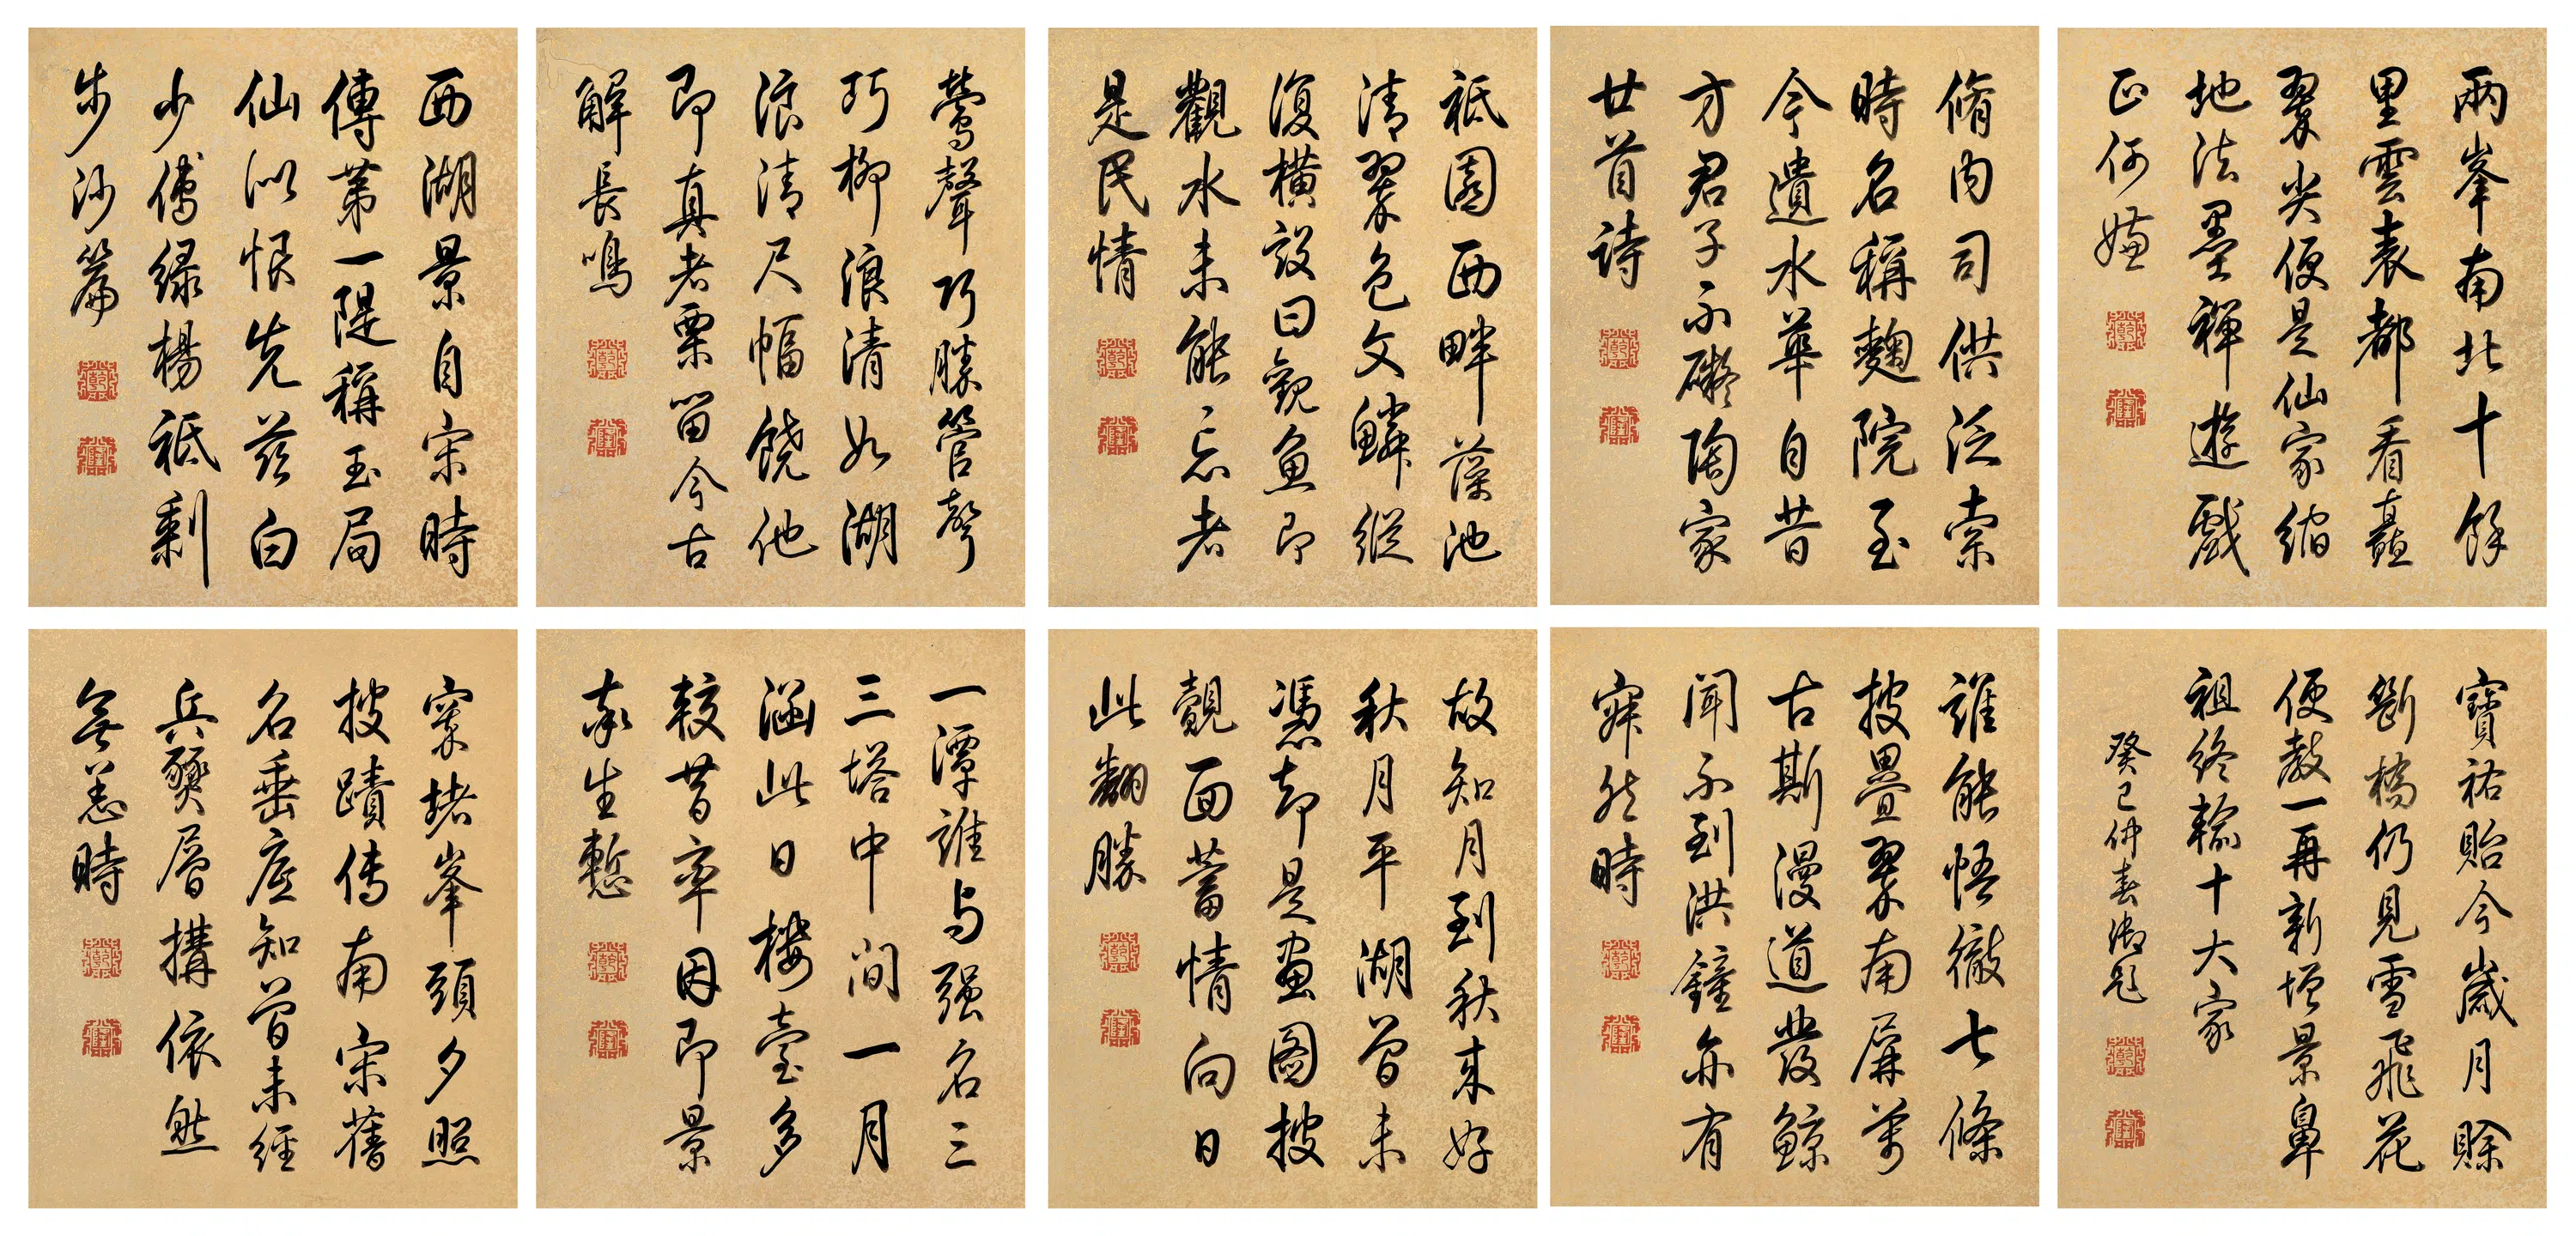 西湖景自宋時
傳第一隄稱玉局
仙似恨先茲白
少傅緑楊祗剩
步沙篇
乾
隆
鶯聲巧勝管聲
巧柳浪清如湖
浪清尺幅饒他
即真者栗留今古
解長鳴
乾
隆
祗園西畔藻池
清翠色文鱗縱
復横設曰觀魚即
觀水未能忘者
是民情
乾
隆
脩内司供泛索
時名稱麴院至
今遺水華自昔
方君子不礙陶家
廿首詩
乾
隆
兩峯南北十餘
里雲表都看矗
翠尖便是仙家縮
地法墨禪遊戲
正何嫌
乾
隆
窣堵峯頭夕照
披蹟傳南宋舊
名垂應知曾未經
兵燹層搆依然
無恙時
乾
隆
一潭誰与强名三
三塔中間一月
涵此日樓臺多
較昔率因即景
奉生慙
乾
隆
故知月到秋来好
秋月平湖曾未
憑却是畫圖披
覿面蓄情向日
此翻勝
乾
隆
誰能悟徹七條
披疊翠南屏萬
古斯漫道發鯨
聞不到洪鐘亦有
寂然時
乾
隆
寶祐貽今歲月賒
斷橋仍見雪飛花
便教一再新增景鼻
祖終輸十大家
癸巳仲春御題
乾
隆